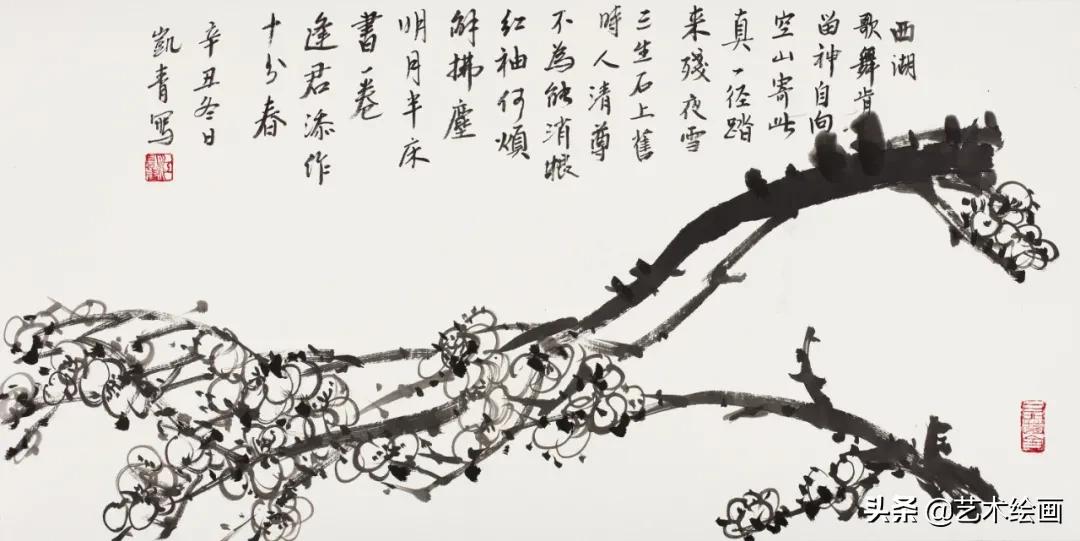 西湖
歌舞肯
留神自向
空山寄此
真一径踏
来殘夜雪
三生石上舊
時人清尊
不為能消恨
紅袖何煩
解拂塵
明月半床
書一卷
逢君添作
十分春
辛丑冬日
凱青寫
头条 @艺术绘画